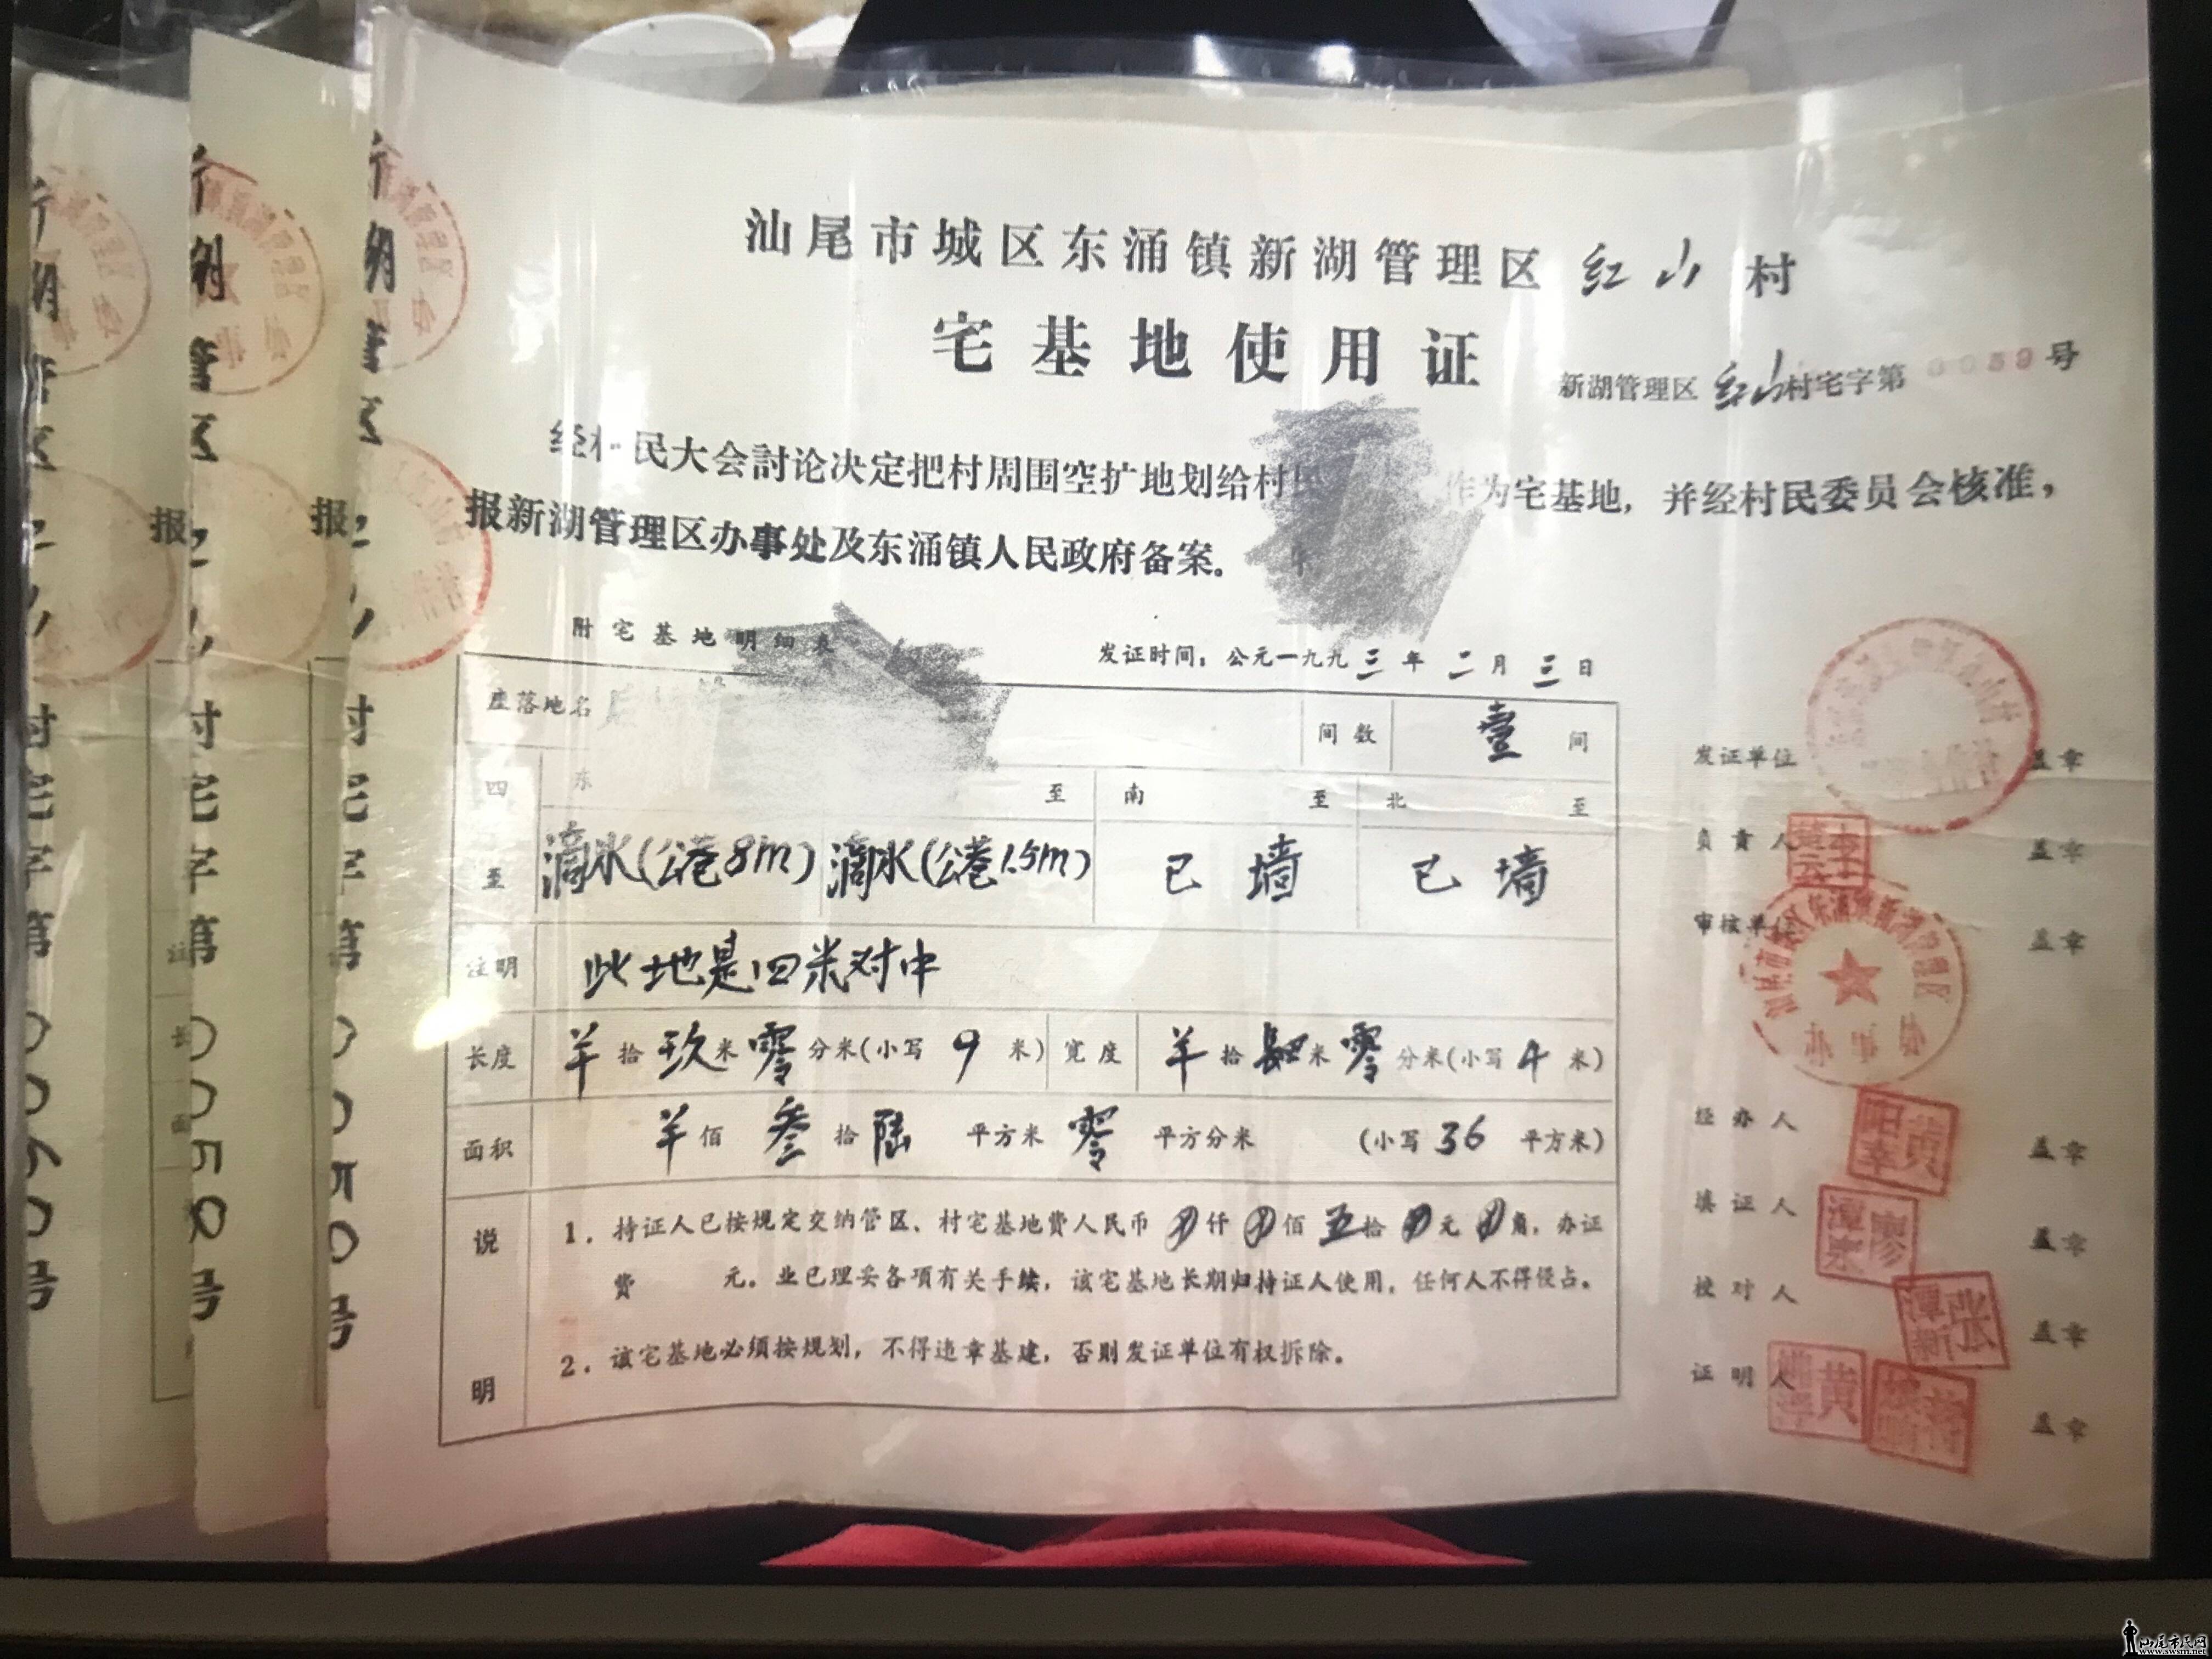 汕尾市城区东涌镇新湖管理区红山村
宅基地使用证
新湖管理区红山村宅字第0059号
经村民大会討论决定把村周围空扩地划给村 作为宅基地，并经村民委员会核准，
报新湖管理区办事处及东涌镇人民政府备案。
附宅基地明细表
发证时间：公元一九九三年二月三日
座落地名 间数 壹 间
四至 东 至 南 至 北 至
滴水(公巷8m) 滴水(公巷1.5m) 已墙 已墙
注明 此地是四米对中
长度 羊拾玖米零分米(小写9米) 宽度 羊拾肆米零分米(小写4米)
面积 羊佰叁拾陆平方米零平方分米 (小写36平方米)
说明
1．持证人已按规定交纳管区、村宅基地费人民币 仟 佰五拾 元 角，办证
费 元。业已理妥各项有关手续，该宅基地长期归持证人使用，任何人不得侵占。
2．该宅基地必须按规划，不得违章基建，否则发证单位有权拆除。
发证单位 盖章
负责人 盖章
审核单位 盖章
汕尾市城区东涌镇新湖管理区
经办人 盖章
填证人 盖章
校对人 盖章
证明人 盖章
报
报
0060号
0058号
汕尾市民网
www.swsm.net